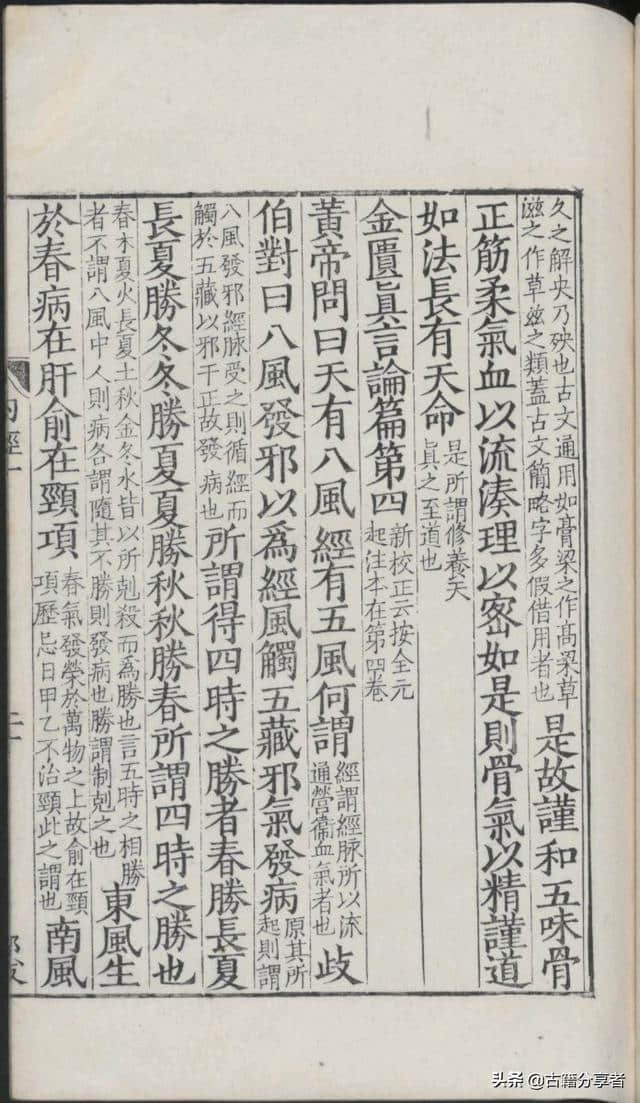 久之解央乃殃也古文通用如膏梁之作髙梁草
滋之作草兹之類蓋古文簡略字多假借用者也
是故謹和五味骨
正筋柔氣血以流湊理以密如是則骨氣以精謹道
如法長有天命
是所謂修養天
真之至道也
金匱眞言論篇第四
新校正云按全元
起注本在第四卷
黃帝問曰天有八風經有五風何謂
經謂經脉所以流
通營衞血氣者也
歧
伯對曰八風發邪以爲經風觸五藏邪氣發病
原其所
起則謂
八風發邪經脉受之則循經而
觸於五藏以邪干正故發病也
所謂得四時之勝者春勝長夏
長夏勝冬冬勝夏夏勝秋秋勝春所謂四時之勝也
春木夏火長夏土秋金冬水皆以所剋殺而爲勝也言五時之相勝
者不謂八風中人則病各謂隨其不勝則發病也勝謂制剋之也
東風生
於春病在肝俞在頸項
春氣發榮於萬物之上故俞在頸
項歷忌日甲乙不治頸此之謂也
南風
頭条 @古籍分享者